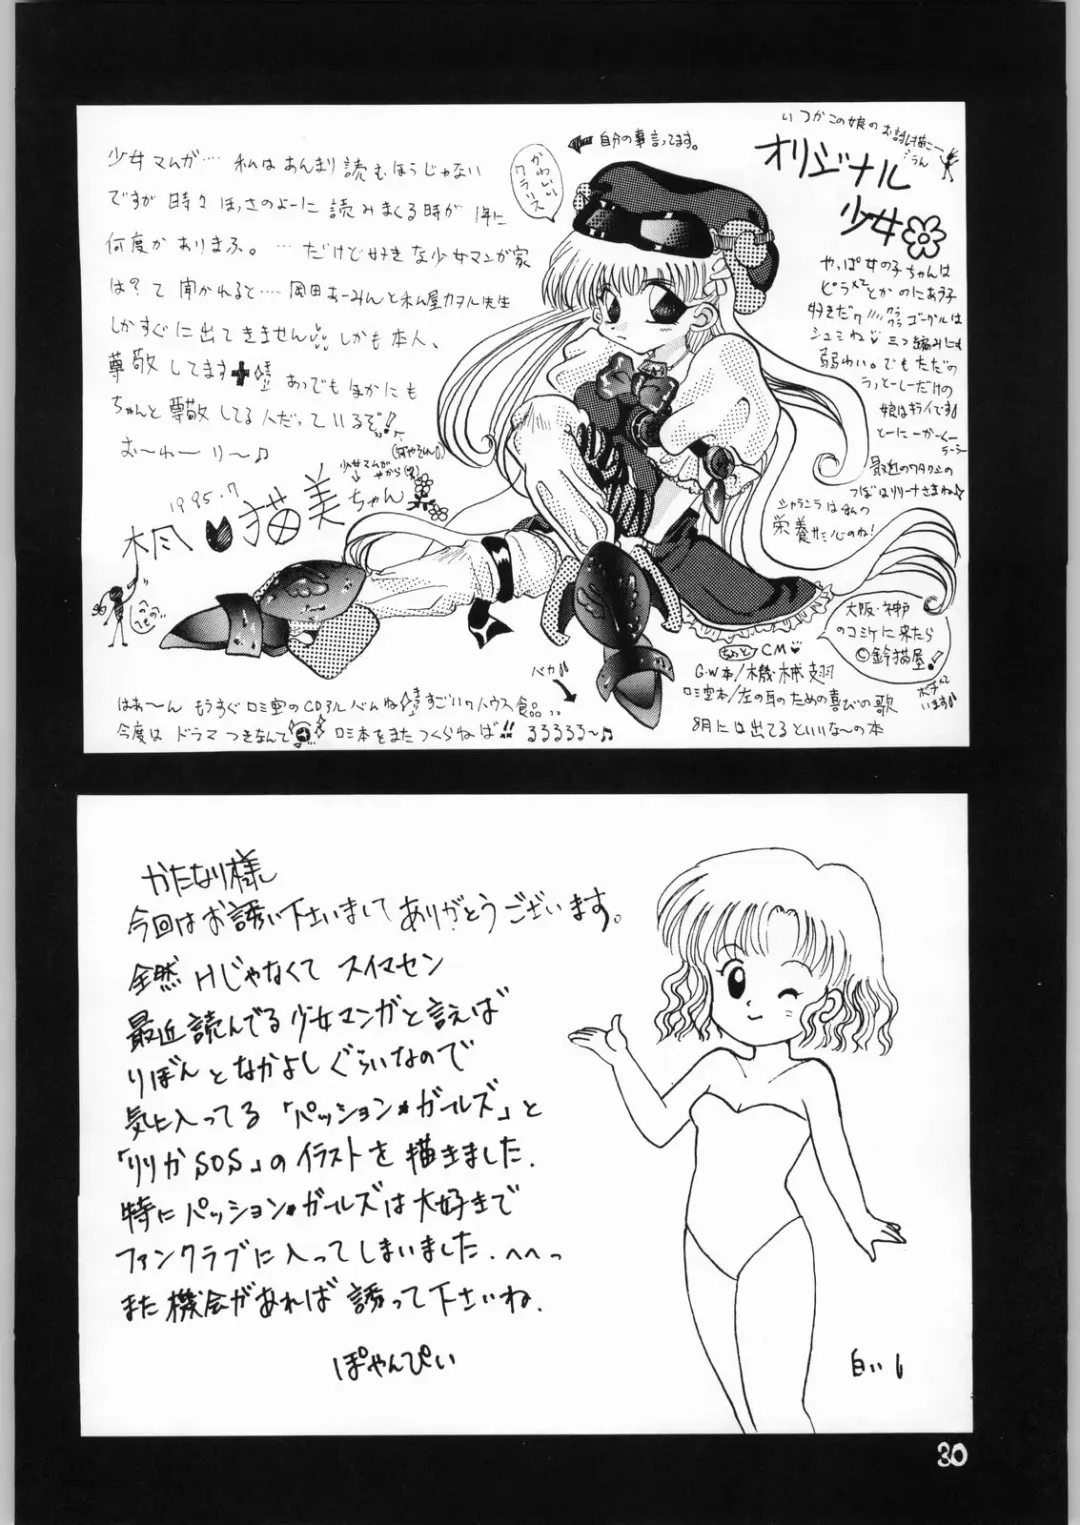 少女マムガ‥‥ 私はあんまり読むほうじゃない
ですが 時々 ほっさのよーに 読みまくる時が 1年に
何度か ありまふ。 …だけど 好きな少女マンガ家
は?て 聞かれると‥‥ 岡田あーみんと
先生
しかすぐに出てきません しかも本人、
尊敬してます
あっでも ほかにも
ちゃんと尊敬してる人だっているぞ!
お〜わ〜り〜♪
1995.7
猫美ちゃん
かわいい
クラリス
自分の事言ってます。
いつかこの娘の
オリジナル
少女
やっぱ女の子ちゃんは
好きだワ
ゴーグルは
シュミね 三つ編みにも
弱わい。でもただの
娘はキライです♪
とーにーかーくー
最近のワタクシの
つぼはリリーナさまね
栄養
大阪・神戸
のコミケに来たら
©鈴猫屋!
ちょっとCM
G・W本/機・械翅
ロミ堂本/左の耳のための喜びの歌
8月には出てるといいな〜の本
バカ
はぁ〜ん もうすぐ ロミ堂のCDアルバムね すごいワ ハウス食品
今度は ドラマつきなんて ロミ本をまたつくらねば!! るるるるる〜♪
かたなり様
今回はお誘い下さいまして ありがとうございます。
全然 Hじゃなくて スイマセン
最近読んでる少女マンガと言えば
りぼんとなかよしぐらいなので
気に入ってる「パッション★ガールズ」と
「りりかSOS」のイラストを描きました.
特にパッション★ガールズは大好きで
ファンクラブに入ってしまいました. へへっ
また機会があれば誘って下さいね.
ぽやんぴぃ
白いし
30